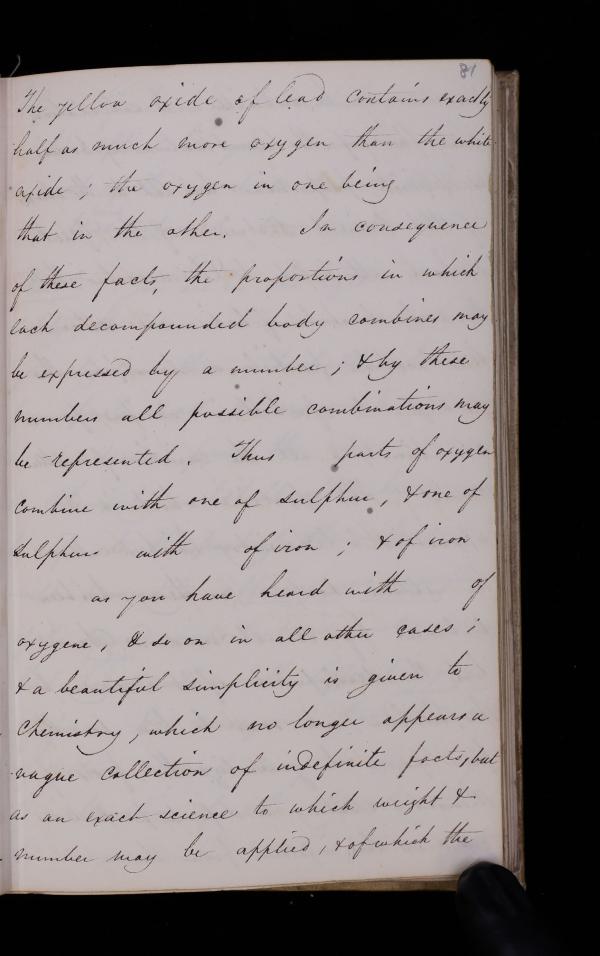 81
The yellow oxide of lead contains exactly
half as much more oxygen than the white
oxide ; the oxygen in one being
that in the other. In consequence
of these facts, the proportions in which
each decompounded body combines may
be expressed by a number ; & by these
numbers all possible combinations may
be represented. Thus parts of oxygen
combine with one of sulphur, & one of
sulphur with of iron ; & of iron
as you have heard with of
oxygene, & so on in all other cases ;
& a beautiful simplicity is given to
Chemistry, which no longer appears a
vague collection of indefinite facts, but
as an exact science to which weight &
number may be applied, & of which the